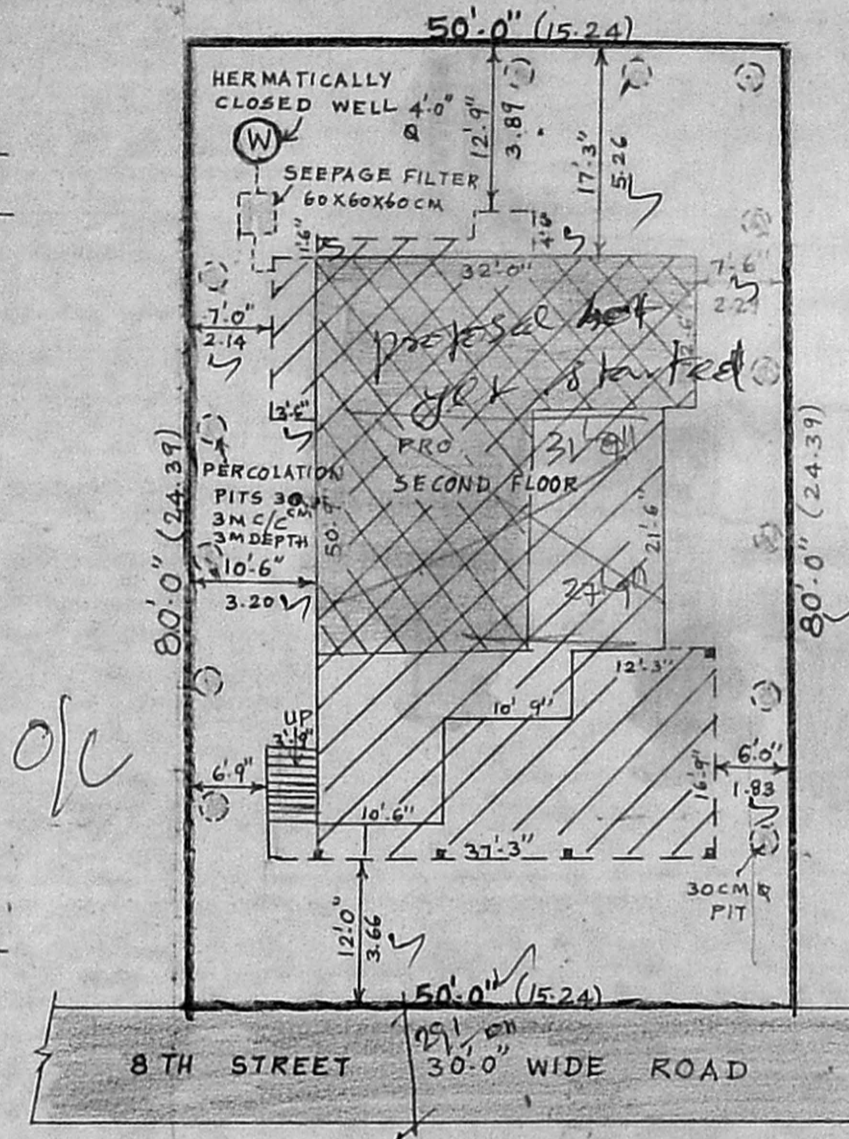 50'-0" (15.24)
HERMATICALLY
CLOSED WELL 4'-0"
W
12'-9"
3.89
17'-3"
5.26
SEEPAGE FILTER
60X60X60CM
1'-6"
4'-6"
32'-0"
7'-6"
2.29
7'-0"
2.14
proposal not
yet started
3'-6"
PRO
SECOND FLOOR
31'-0"
PERCOLATION
PITS 30 CM
3M C/C
3M DEPTH
50'-9"
21'-6"
27'-9"
80'-0" (24.39)
80'-0" (24.39)
10'-6"
3.20
12'-3"
10'-9"
UP
3'-9"
O/C
6'-9"
16'-9"
6'-0"
1.83
10'-6"
37'-3"
30CM
PIT
12'-0"
3.66
50'-0" (15.24)
29'-0"
8TH STREET 30'-0" WIDE ROAD